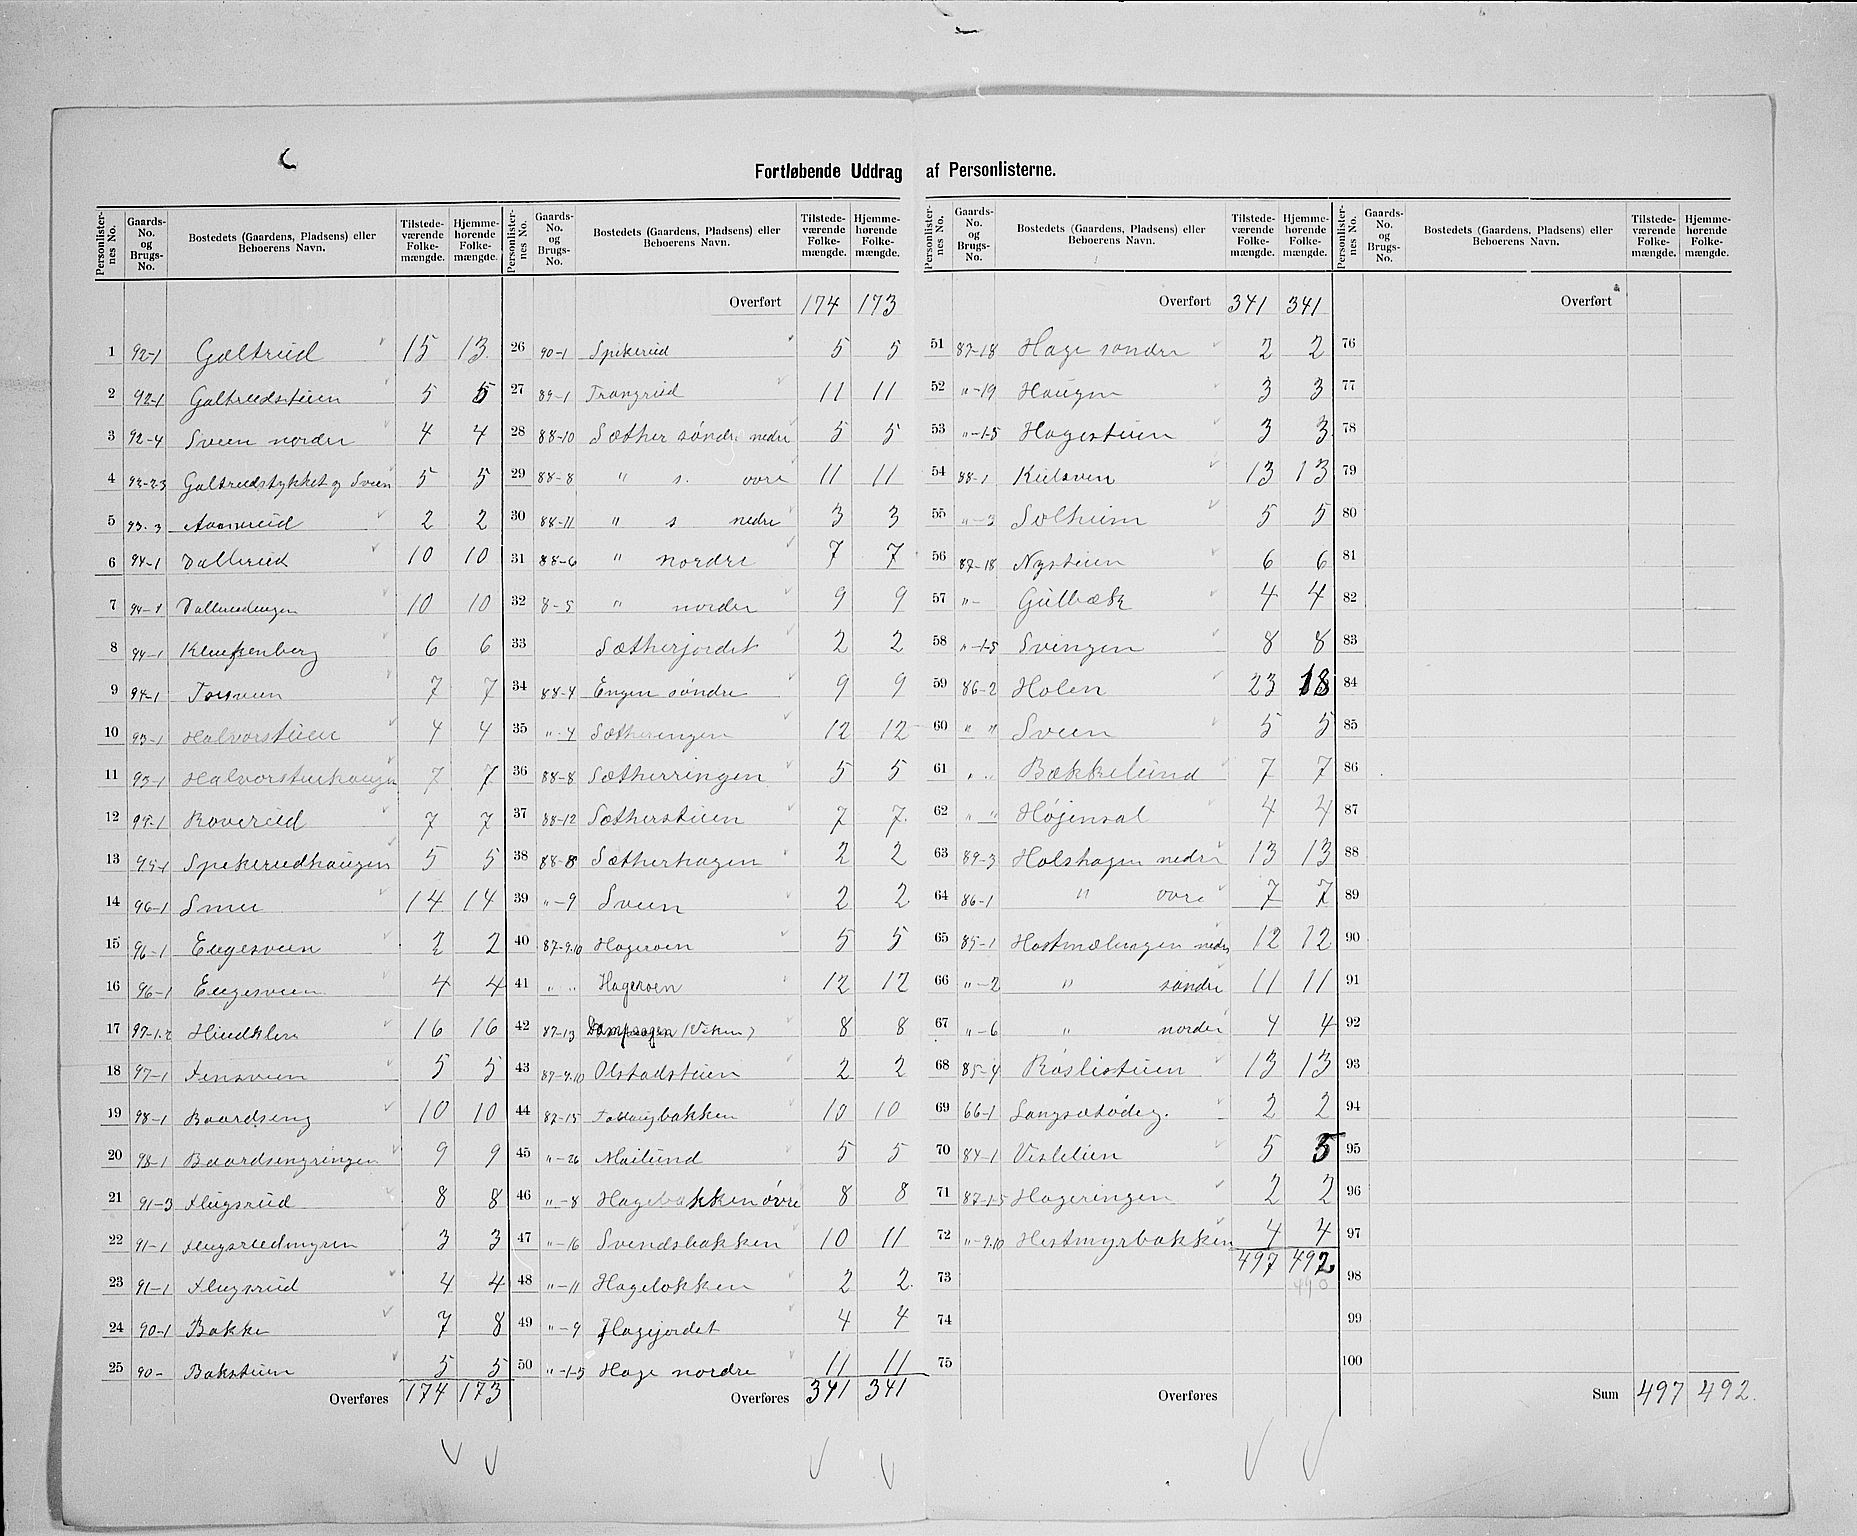 Fortløbende Uddrag af Personlisterne.
Personlister-nes No. Gaards-No. og Brugs-No. Bostedets (Gaardens, Pladsens) eller Beboerens Navn. Tilstede-værende Folke-mængde. Hjemme-hørende Folke-mængde.
1 92-1 Galtrud 15 13
2 92-1 Galtrudstuen 5 5
3 92-4 Sveen nordre 4 4
4 92-2.3 Galtrudstykket og Sveen 5 5
5 93-3 2 2
6 94-1 Dallerud 10 10
7 94-1 Dallerudengen 10 10
8 94-1 6 6
9 94-1 7 7
10 93-1 Halvorstuen 4 4
11 93-1 Halvorstuehaugen 7 7
12 94-1 Roverud 7 7
13 95-1 Spekerudhaugen 5 5
14 96-1 14 14
15 96-1 2 2
16 96-1 4 4
17 97-1.2 16 16
18 97-1 5 5
19 98-1 Baardseng 10 10
20 98-1 Baardsengringen 9 9
21 91-3 Flugsrud 8 8
22 91-1 3 3
23 91-1 Flugsrud 4 4
24 90-1 Bakke 7 8
25 90- Bakstuen 5 5
Overføres 174 173
Personlister-nes No. Gaards-No. og Brugs-No. Bostedets (Gaardens, Pladsens) eller Beboerens Navn. Tilstede-værende Folke-mængde. Hjemme-hørende Folke-mængde.
Overført 174 173
26 90-1 Spikerud 5 5
27 89-1 Trangrud 11 11
28 88-10 Sæther søndre nedre 5 5
29 88-8 " s. øvre 11 11
30 88-11 " s nedre 3 3
31 88-6 " nordre 7 7
32 8-5 " nordre 9 9
33 Sætherjordet 2 2
34 88-4 Engen søndre 9 9
35 "-4 Sætherengen 12 12
36 88-8 Sætherringen 5 5
37 88-12 Sætherstuen 7 7
38 88-8 Sætherhagen 2 2
39 "-9 Sveen 2 2
40 87-9.10 Hageroen 5 5
41 " " Hageroen 12 12
42 87-13 Dampsagen (Viken) 8 8
43 87-9.10 Olstadstuen 2 2
44 87-15 10 10
45 "-26 Mailund 5 5
46 "-8 Hagebakken øvre 8 8
47 "-16 Svendsbakken 10 11
48 "-11 Hageløkken 2 2
49 "-9 Hagejordet 4 4
50 "-1-5 Hage nordre 11 11
Overføres 341 341
Personlister-nes No. Gaards-No. og Brugs-No. Bostedets (Gaardens, Pladsens) eller Beboerens Navn. Tilstede-værende Folke-mængde. Hjemme-hørende Folke-mængde.
Overført 341 341
51 87-18 Hage søndre 2 2
52 "-19 Haugen 3 3
53 "-1-5 Hagestuen 3 3
54 88-1 13 13
55 "-3 Solheim 5 5
56 87-18 Nystuen 6 6
57 "- Gulbæk 4 4
58 "-1-5 Svingen 8 8
59 86-2 Holen 23 18
60 " " Sveen 5 5
61 " " Bækkelund 7 7
62 " " Højensal 4 4
63 89-3 Holshagen nedre 13 13
64 86-1 " øvre 7 7
65 85-1 Hestmælhagen nedre 12 12
66 "-2 " søndre 11 11
67 "-6 " nordre 4 4
68 85-4 Røslistuen 13 13
69 66-1 2 2
70 84-1 5 5
71 87-1-5 Hageringen 2 2
72 "-9.10 Hestmyrbakken 4 4
73 497 492
490
74
75
Overføres
Personlister-nes No. Gaards-No. og Brugs-No. Bostedets (Gaardens, Pladsens) eller Beboerens Navn. Tilstede-værende Folke-mængde. Hjemme-hørende Folke-mængde.
Overført
76
77
78
79
80
81
82
83
84
85
86
87
88
89
90
91
92
93
94
95
96
97
98
99
100
Sum 497 492.